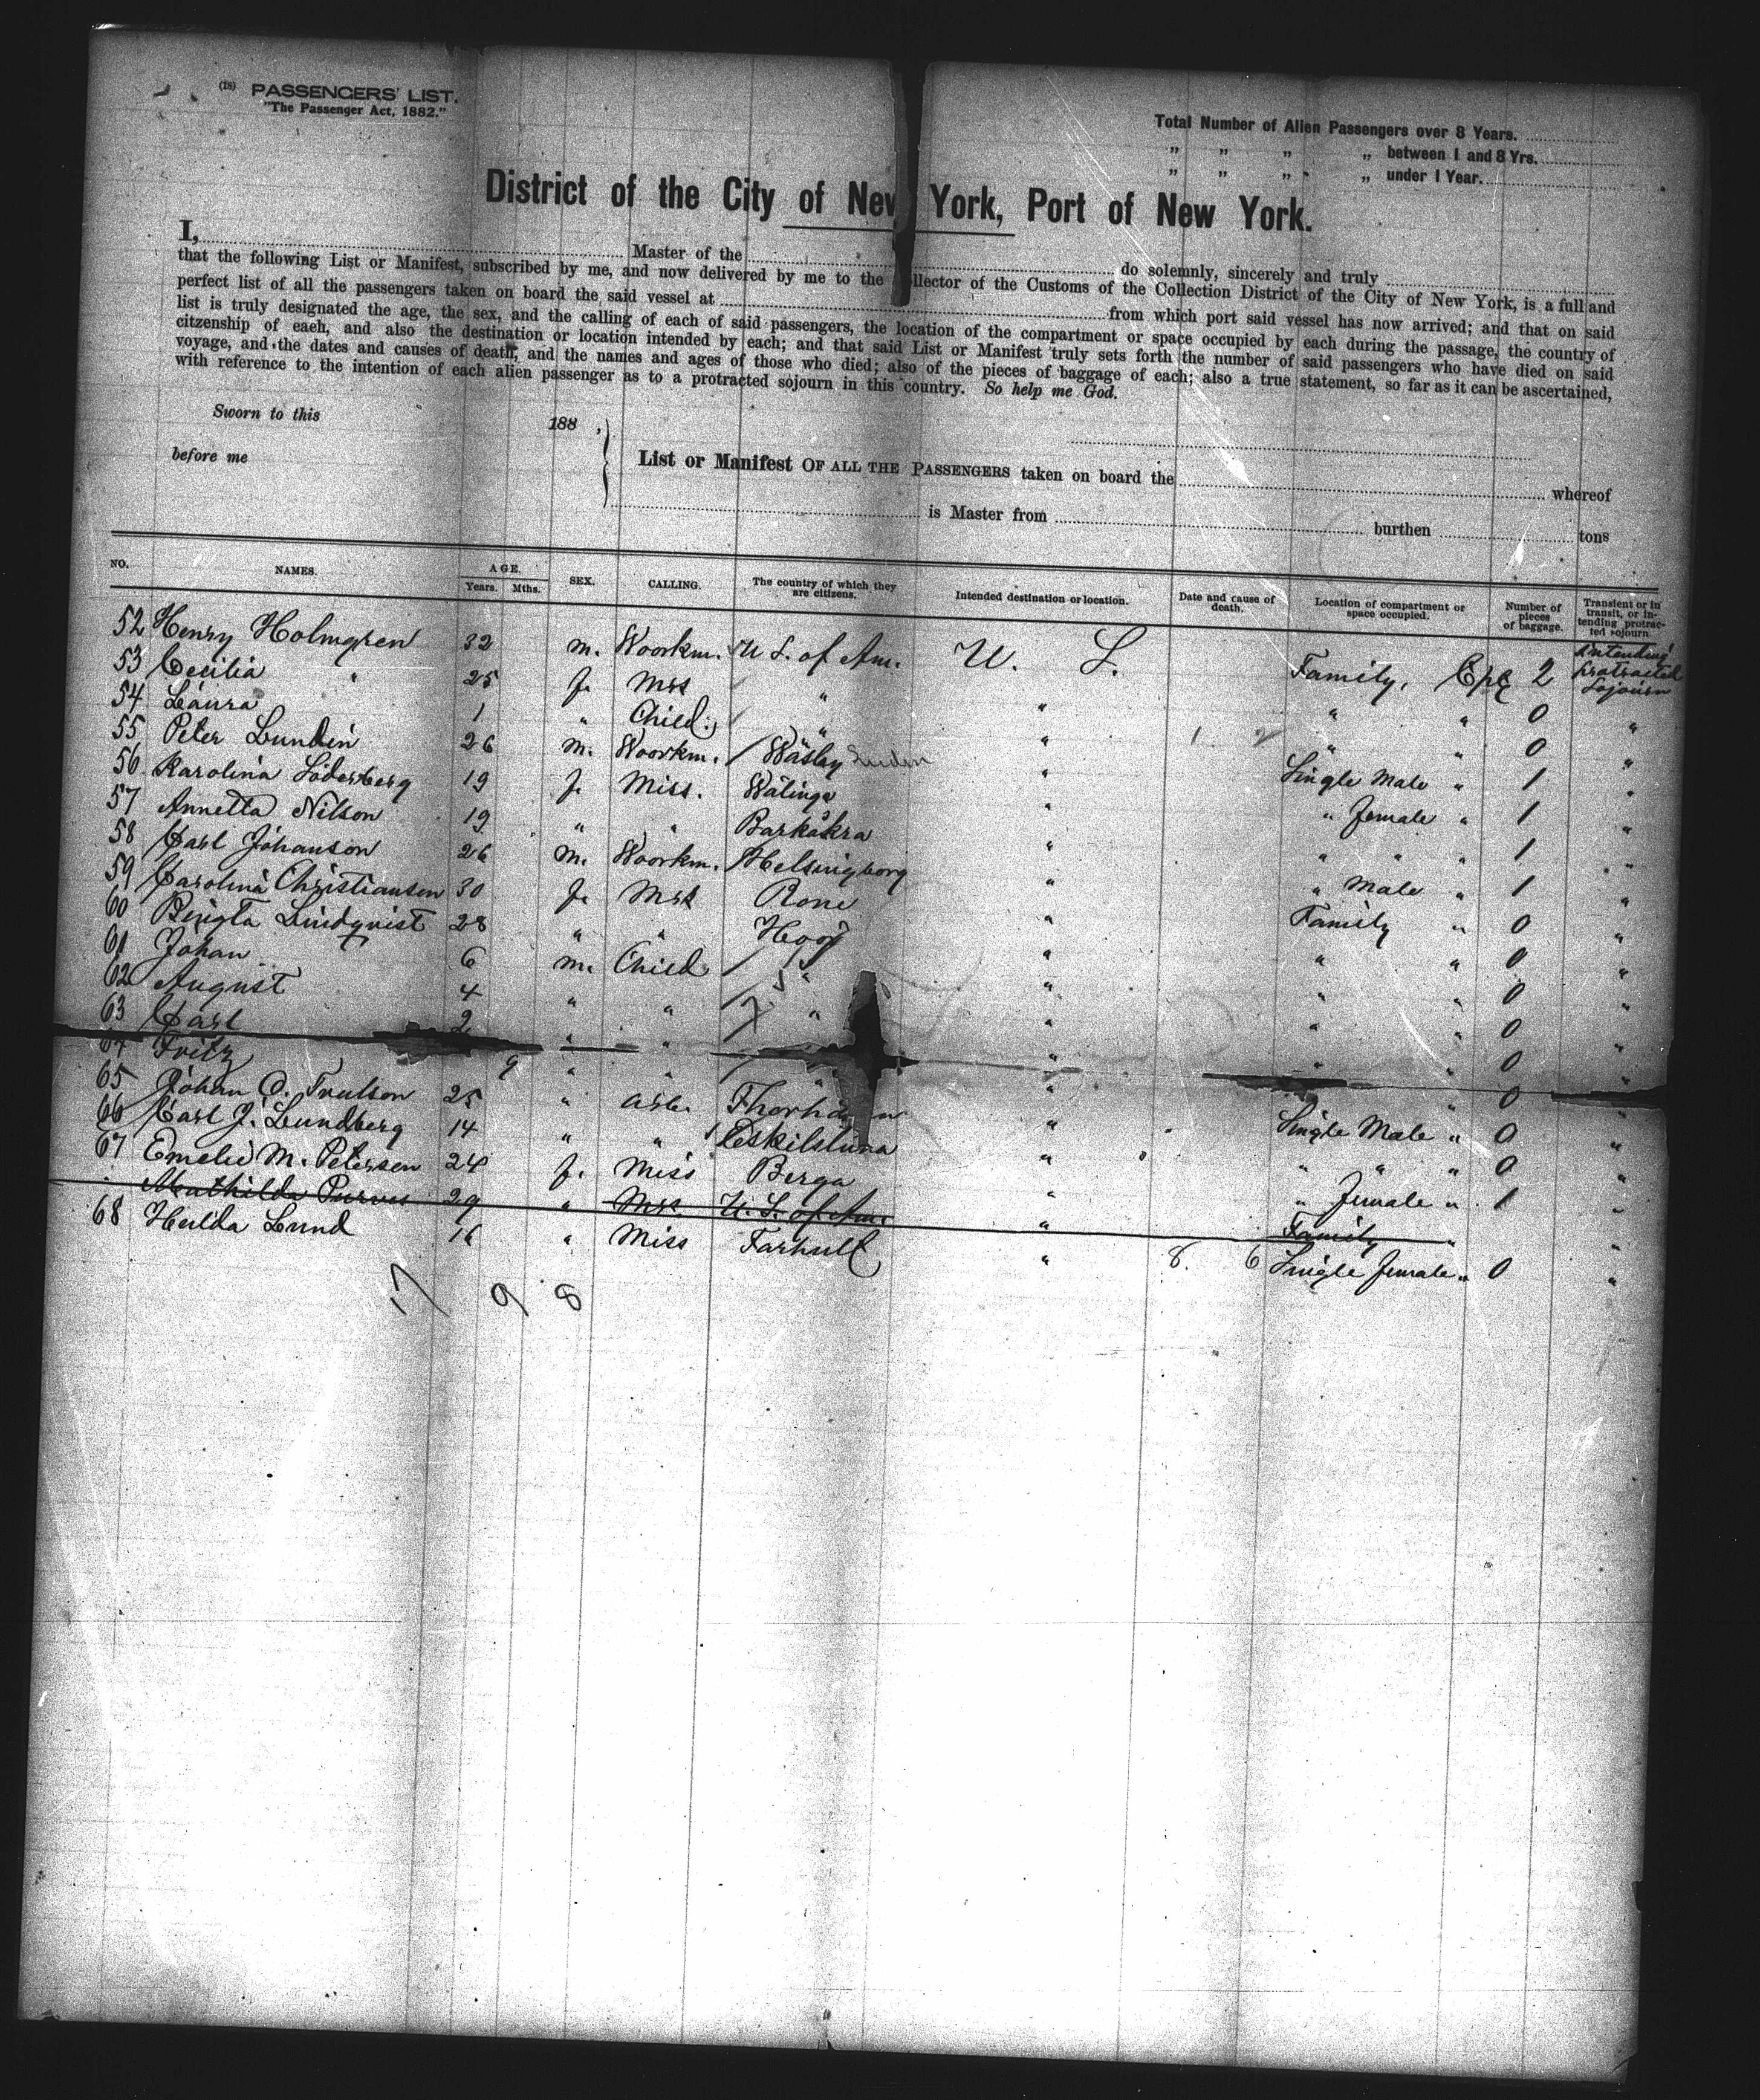 (18) PASSENGERS' LIST.
"The Passenger Act, 1882."
Total Number of Alien Passengers over 8 Years.
" " " " between 1 and 8 Yrs.
" " " " under 1 Year.
District of the City of New York, Port of New York.
I, Master of the do solemnly, sincerely and truly
that the following List or Manifest, subscribed by me, and now delivered by me to the llector of the Customs of the Collection District of the City of New York, is a full and
perfect list of all the passengers taken on board the said vessel at from which port said vessel has now arrived; and that on said
list is truly designated the age, the sex, and the calling of each of said passengers, the location of the compartment or space occupied by each during the passage, the country of
citzenship of eaeh, and also the destination or location intended by each; and that said List or Manifest truly sets forth the number of said passengers who have died on said
voyage, and the dates and causes of death, and the names and ages of those who died; also of the pieces of baggage of each; also a true statement, so far as it can be ascertained,
with reference to the intention of each alien passenger as to a protracted sojourn in this country. So help me God.
Sworn to this 188 ,
before me
List or Manifest OF ALL THE PASSENGERS taken on board the whereof
is Master from burthen tons
NO. NAMES. AGE. Years. Mths. SEX. CALLING. The country of which they are citizens. Intended destination or location. Date and cause of death. Location of compartment or space occupied. Number of pieces of baggage. Transient or in transit, or intending protracted sojourn.
52 Henry Holmgren 32 m. Woorkm. U S. of Am. U. S. Family, 2 Intending protracted Sojourn
53 Cecilia " 25 f. Mrs " " " " 0 "
54 Laura 1 " Child. " " " " 0 "
55 Peter Lundin 26 m. Woorkm. Wäsby " Single Male " 1 "
56 Karolina Söderberg 19 f. Miss. Wälinge " " Female " 1 "
57 Annetta Nilson 19 " " Barkåkra " " " " 1 "
58 Carl Johanson 26 m. Woorkm. Helsingborg " " Male " 1 "
59 Carolina Christiansen 30 f. Mrs Rone " Family " 0 "
60 Bengta Lindqvist 28 " " Hoor " " " 0 "
61 Johan 6 m. Child " " " " 0 "
62 August 4 " " " " " " 0 "
63 Carl 2 " " " " " " 0 "
64 Fritz 9 " " " " " 0 "
65 Johan O. Trulson 25 " " Single Male " 0 "
66 Carl J. Lundberg 14 " " Eskilstuna " " " " 0 "
67 Emelie M. Petersen 24 f. Miss Berga " " Female " 1 "
Mathilda Purves 29 " Mrs. U. S. of Am. " Family " "
68 Hulda Lund 16 " Miss Farhult " 8. 6 Single Female " 0 "
17 9 8